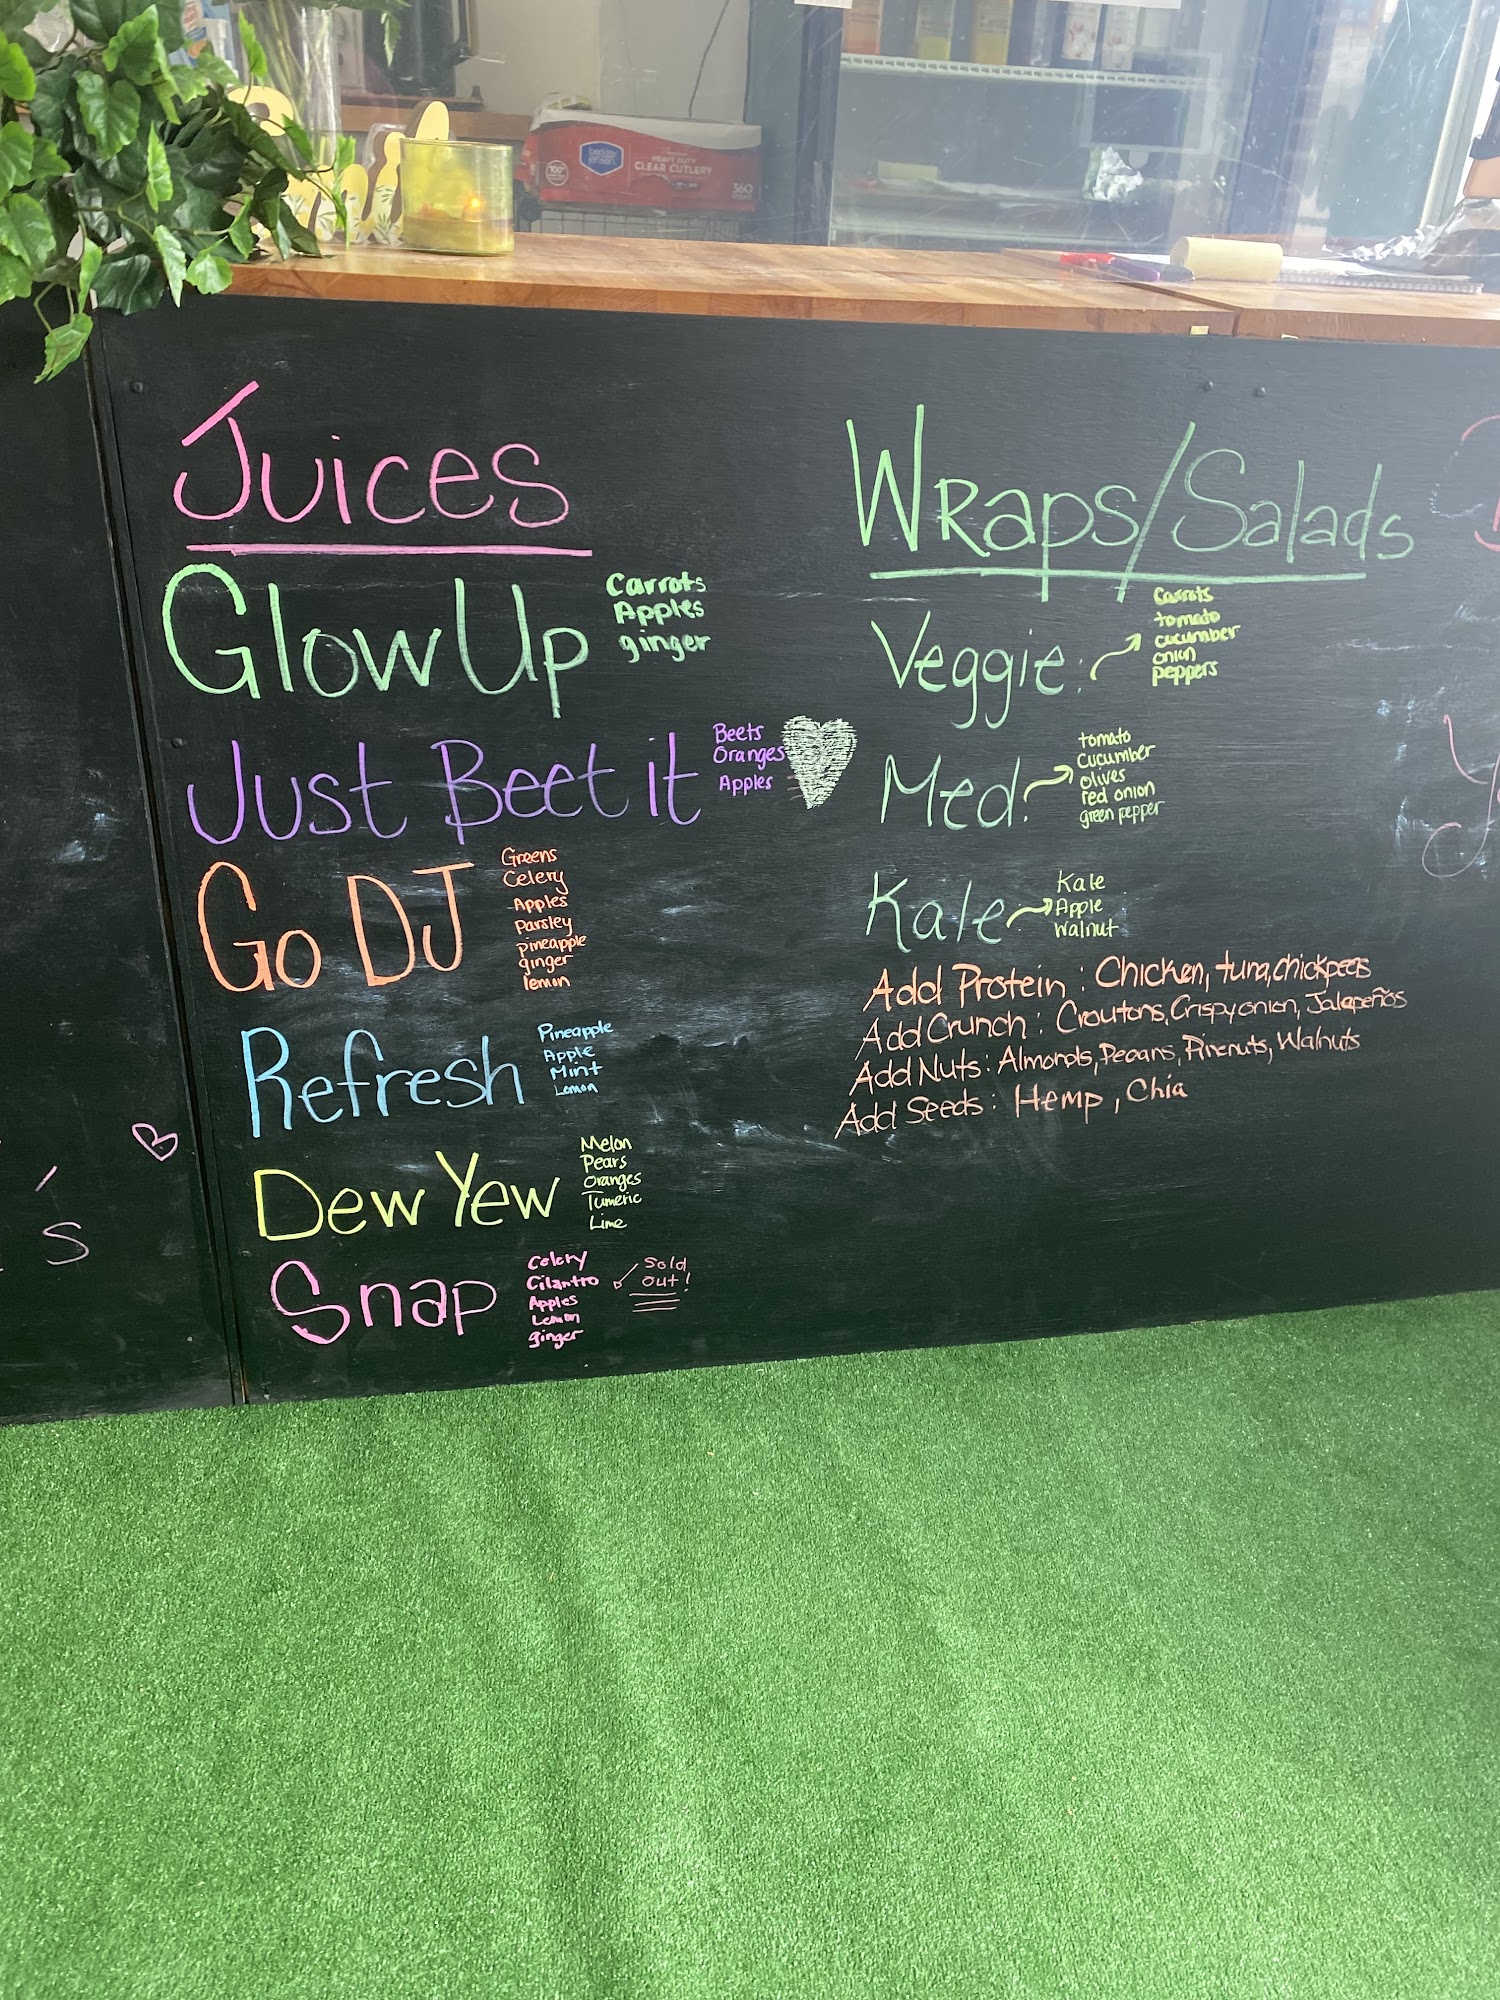 berkley jensen
Premium
HEAVY DUTY
CLEAR CUTLERY
360
Juices
Glow Up
Carrots
Apples
ginger
Just Beet it
Beets
Oranges
Apples
Go DJ
Greens
Celery
Apples
Parsley
pineapple
ginger
lemon
Refresh
Pineapple
Apple
Mint
Lemon
Dew Yew
Melon
Pears
Oranges
Tumeric
Lime
Snap
Celery
Cilantro
Apples
Lemon
ginger
Sold
out!
Wraps/Salads
Veggie:
Carrots
tomato
cucumber
onion
peppers
Med:
tomato
cucumber
olives
red onion
green pepper
Kale
Kale
Apple
Walnut
Add Protein: Chicken, tuna, chickpeas
Add Crunch: Croutons, Crispy onion, Jalapeños
Add Nuts: Almonds, Pecans, Pinenuts, Walnuts
Add Seeds: Hemp, Chia
s